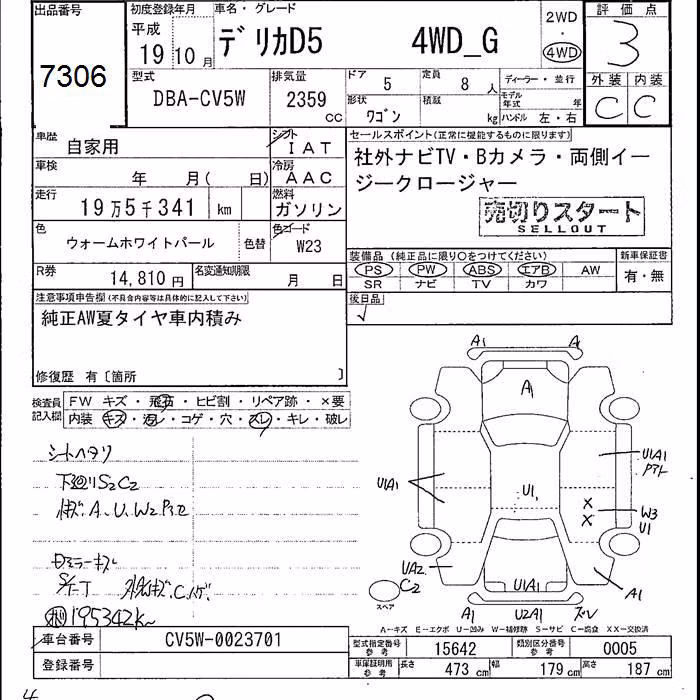 出品番号
7306
初度登録年月
平成
19 10月
車名・グレード
デリカD5 4WD_G
2WD
・
4WD
評価点
3
外装 内装
C C
型式
DBA-CV5W
排気量
2359
cc
ドア 5
定員 8 人
形状 ワゴン
積載 kg
ディーラー・並行
モデル年式 年
ハンドル 左・右
車歴
自家用
シフト
IAT
車検
年 月( 日)
冷房
AAC
走行
19万5千341 km
燃料
ガソリン
色
ウォームホワイトパール
色替
色コード
W23
R券
14,810円
名変通知期限
月 日
セールスポイント(正常に機能するものに限ります)
社外ナビTV・Bカメラ・両側イー
ジークロージャー
売切りスタート
SELLOUT
装備品(純正品に限り○をつけてください)
PS PW ABS エアB AW
SR ナビ TV カワ
新車保証書
有・無
後日品
注意事項申告欄(不具合内容等は具体的に記入して下さい)
純正AW夏タイヤ車内積み
修復歴 有〔箇所 〕
検査員
記入欄
FW キズ・飛石・ヒビ割・リペア跡・×要
内装 キズ・汚レ・コゲ・穴・スレ・キレ・破レ
シートヘタリ
下廻りS2C2
A、U、W2
195342K
A1 A
A
U1A1
U1A1
U1
W3
U1
UA2
C2
スペア
U1A1
A1
A1 U2A1
A-キズ E-エクボ U-凹み W-補修跡 S-サビ C-腐食 XX-交換済
車台番号
CV5W-0023701
登録番号
型式指定番号
参考
15642
類別区分番号
参考
0005
車庫証明用
参考
長さ 473 cm
幅 179 cm
高さ 187 cm